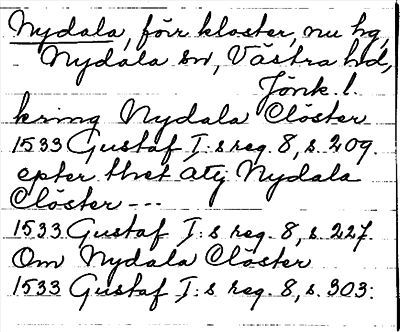 Nydala, förr kloster, nu hg,
Nydala sn, Västra hd,
Jönk. l.
kring Nydala Clöster
1533 Gustaf I:s reg. 8, s. 209.
epter thet atj Nydala
Clöster ---
1533 Gustaf I:s reg. 8, s. 227.
Om Nydala Clöster
1533 Gustaf I:s reg. 8, s. 303.